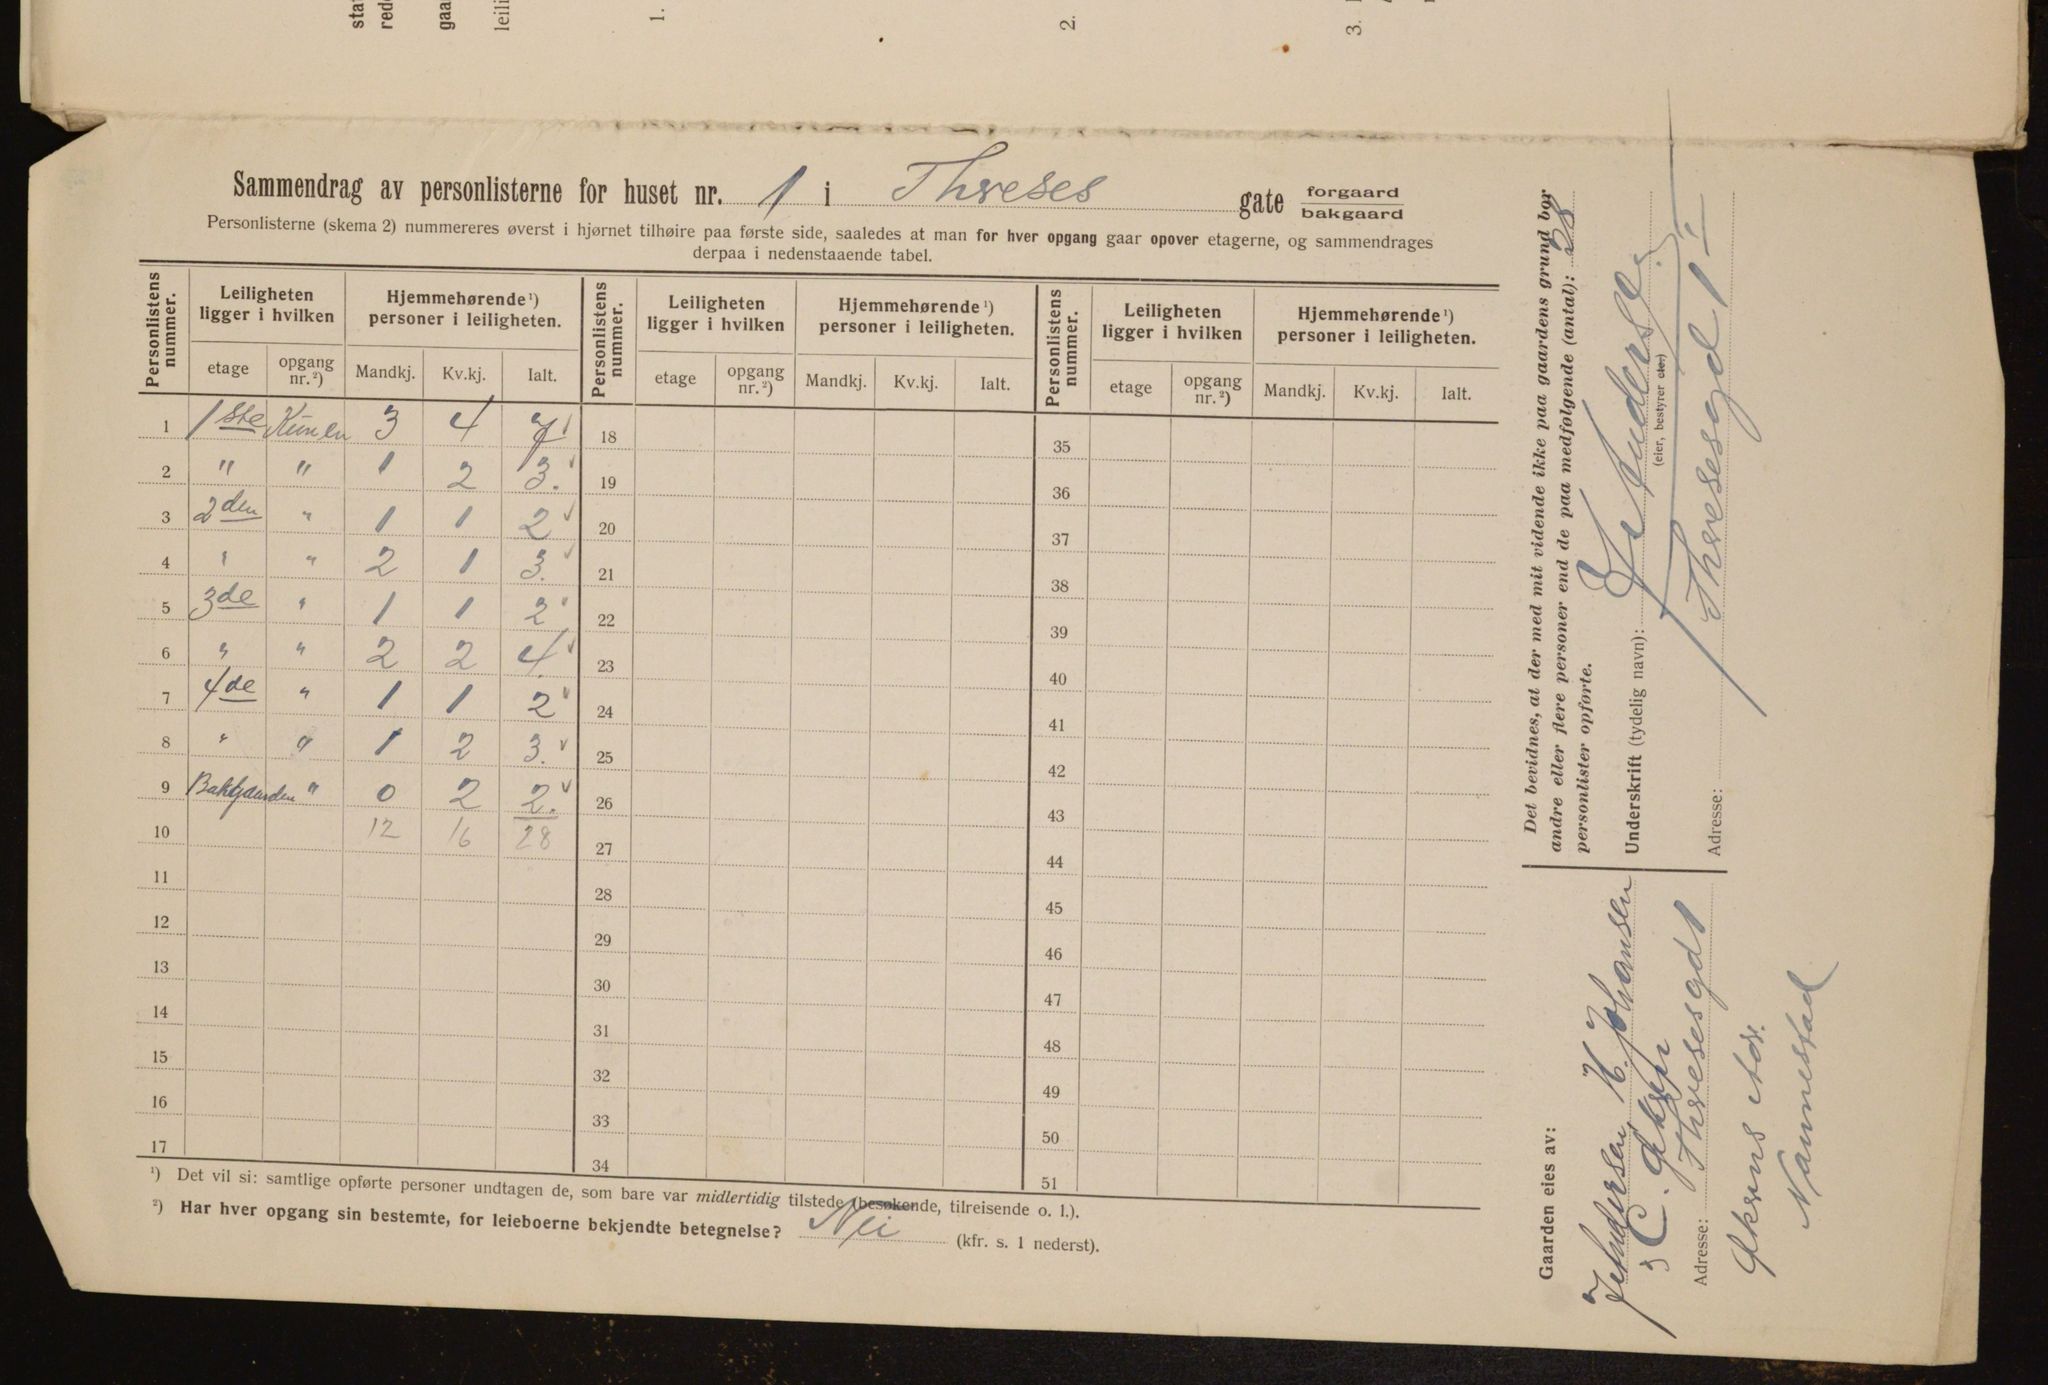 Sammendrag av personlisterne for huset nr. 1 i Thereses gate forgaard
bakgaard
Personlisterne (skema 2) nummereres øverst i hjørnet tilhøire paa første side, saaledes at man for hver opgang gaar opover etagerne, og sammendrages
derpaa i nedenstaaende tabel.
Personlistens nummer. Leiligheten ligger i hvilken Hjemmehørende ¹) personer i leiligheten. Personlistens nummer. Leiligheten ligger i hvilken Hjemmehørende ¹) personer i leiligheten. Personlistens nummer. Leiligheten ligger i hvilken Hjemmehørende ¹) personer i leiligheten.
etage opgang nr. ²) Mandkj. Kv.kj. Ialt. etage opgang nr. ²) Mandkj. Kv.kj. Ialt. etage opgang nr. ²) Mandkj. Kv.kj. Ialt.
1 1ste Kun en 3 4 7 18 35
2 " " 1 2 3. 19 36
3 2den " 1 1 2 20 37
4 " " 2 1 3. 21 38
5 3de " 1 1 2 22 39
6 " " 2 2 4. 23 40
7 4de " 1 1 2 24 41
8 " " 1 2 3. 25 42
9 Bakgaarden " 0 2 2. 26 43
10 12 16 28 27 44
11 28 45
12 29 46
13 30 47
14 31 48
15 32 49
16 33 50
17 34 51
¹) Det vil si: samtlige opførte personer undtagen de, som bare var midlertidig tilstede (besøkende, tilreisende o. l.).
²) Har hver opgang sin bestemte, for leieboerne bekjendte betegnelse? Nei (kfr. s. 1 nederst).
Det bevidnes, at der med mit vidende ikke paa gaardens grund bor
andre eller flere personer end de paa medfølgende (antal): 28
personlister opførte.
Underskrift (tydelig navn): Andersen
(eier, bestyrer etc.)
Adresse: Theresesgd 1
Gaarden eies av:
Andersen, H. Johansen
C.
Adresse: Theresesgd 1
Adr.
Nannestad
sta
red
gaa
leili
1.
2.
3.